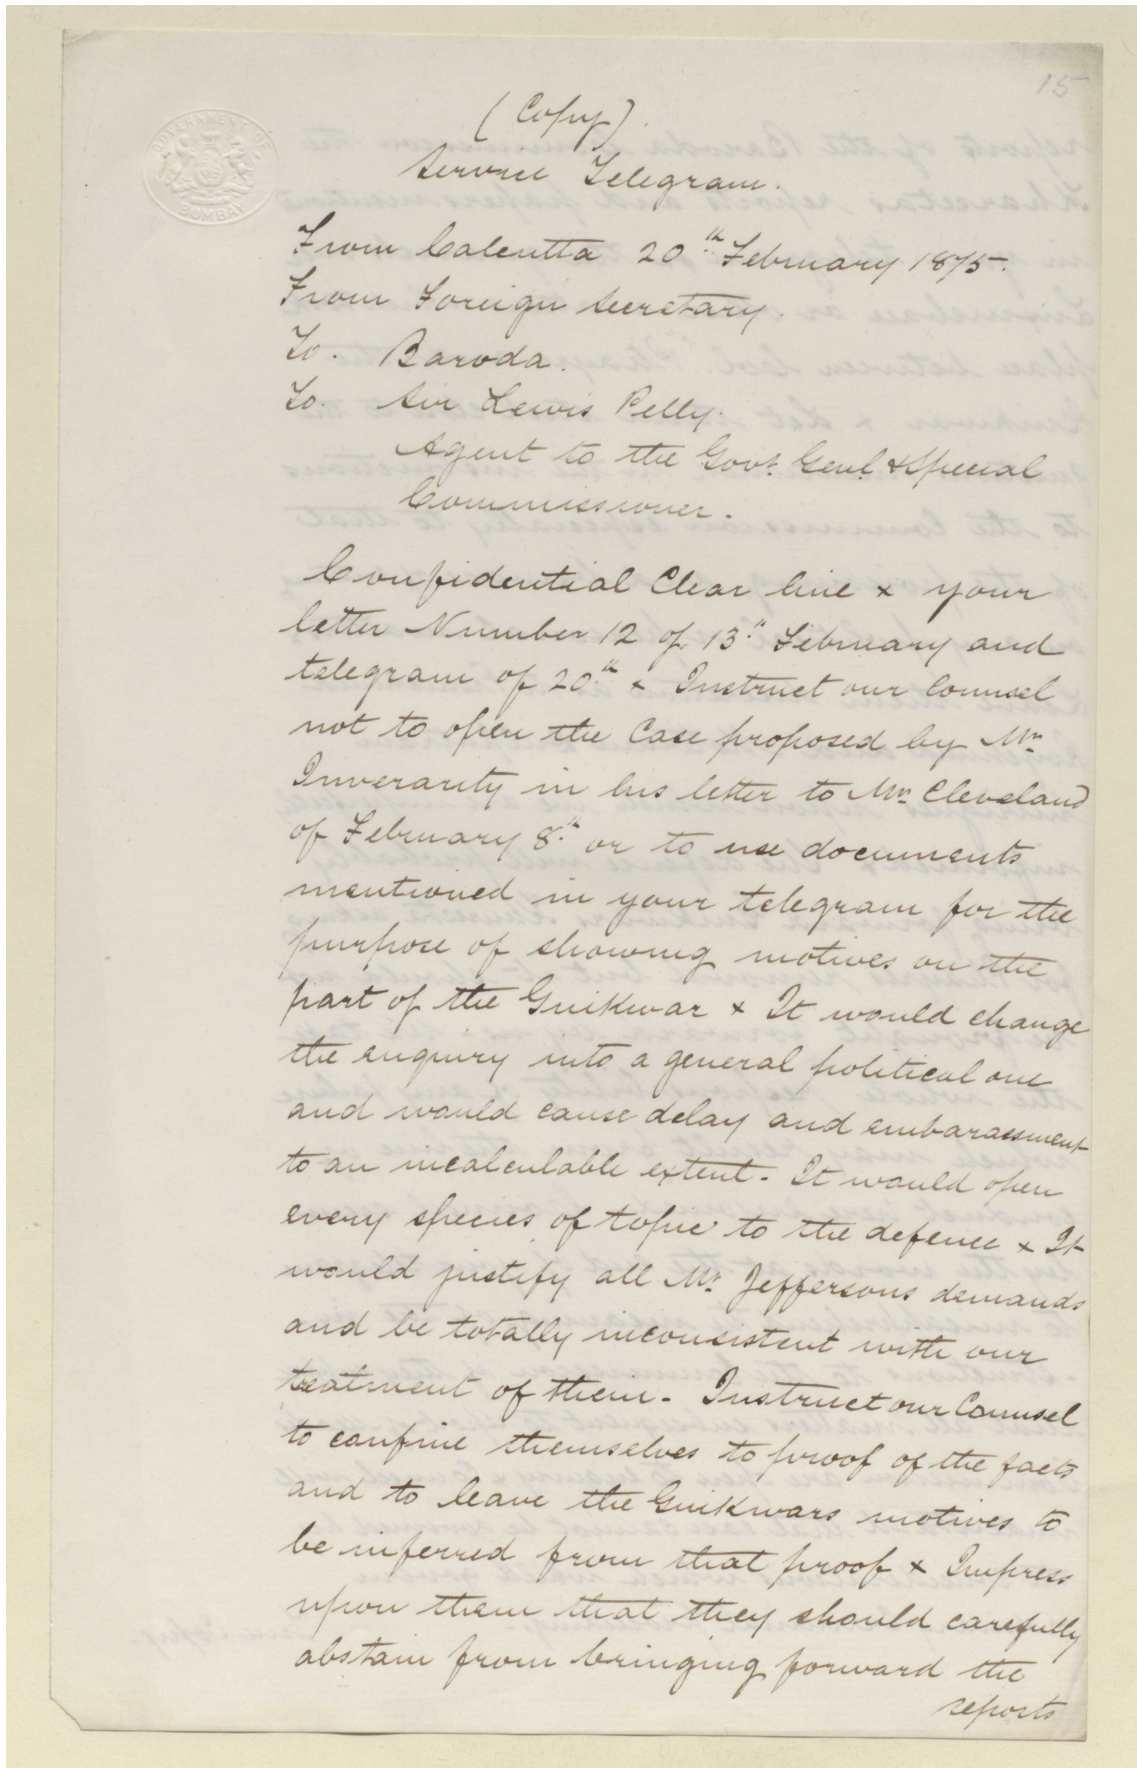 15
(Copy).
Service Telegram.
GOVERNMENT OF
BOMBAY
From Calcutta 20th February 1875.
From Foreign Secretary.
To. Baroda.
To. Sir Lewis Pelly.
Agent to the Govr. Genl. & Special
Commissioner.
Confidential Clear line x your
letter Number 12 of 13th February and
telegram of 20th x Instruct our Counsel
not to open the Case proposed by Mr.
Inverarity in his letter to Mr. Cleveland
of February 8th or to use documents
mentioned in your telegram for the
purpose of showing motives on the
part of the Guikwar x It would change
the enquiry into a general political one
and would cause delay and embarassment
to an incalculable extent. It would open
every species of topic to the defence x It
would justify all Mr. Jeffersons demands
and be totally inconsistent with our
treatment of them. Instruct our Counsel
to confine themselves to proof of the facts
and to leave the Guikwars motives to
be inferred from that proof x Impress
upon them that they should carefully
abstain from bringing forward the
reports